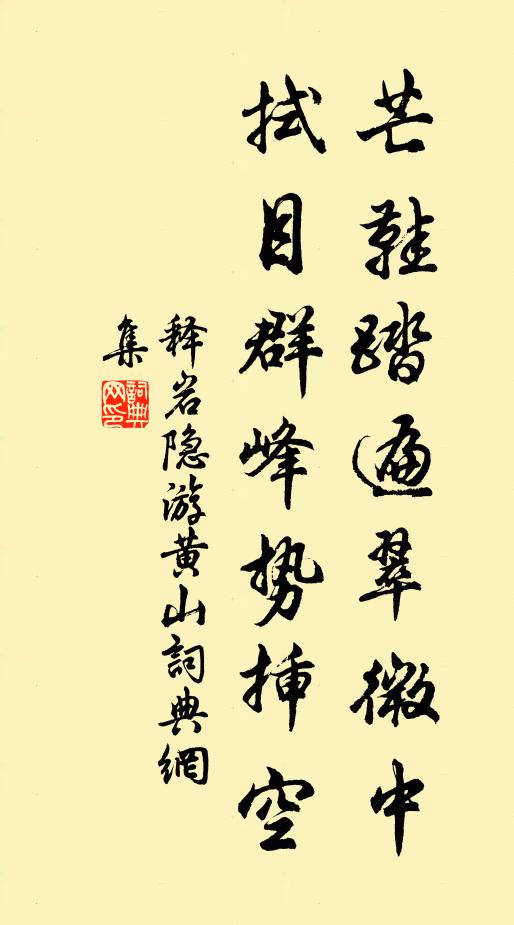 芒鞋踏遍翠微中
拭目群峰势插空
释岩隐游黄山詞典網
集
詞典网印